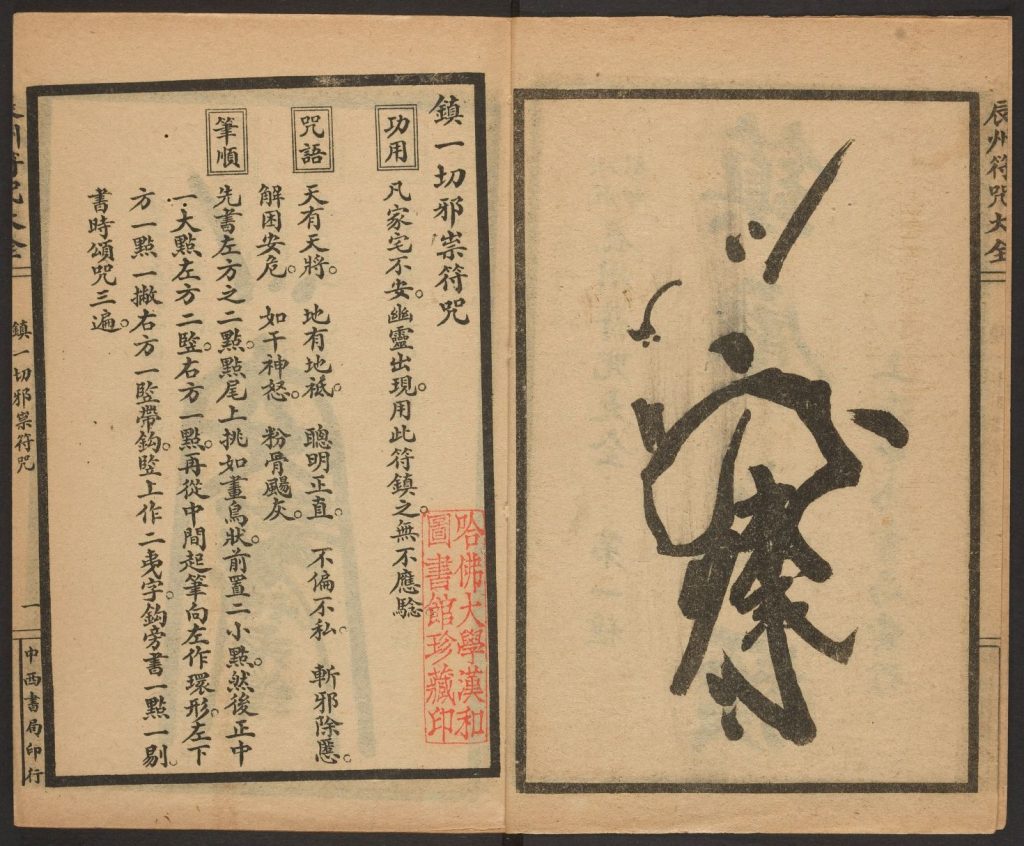 辰州符咒大全
鎮一切邪祟符咒
功用
凡家宅不安。幽靈出現。用此符鎮之。無不應騐
哈佛大學漢和
圖書館珍藏印
咒語
天有天將。 地有地祗。 聰明正直。 不偏不私。 斬邪除慝。
解困安危。 如干神怒。 粉骨颺灰。
筆順
先書左方之二點。點尾上挑如畫鳥狀。前置二小點。然後正中
一大點。左方二竪。右方一點。再從中間起筆向左作環形。左下
方一點一撇。右方一竪帶鈎。竪上作二夷字。鈎旁書一點一剔。
書時頌咒三遍。
州符咒大全
鎮一切邪祟符咒
一
中西書局印行